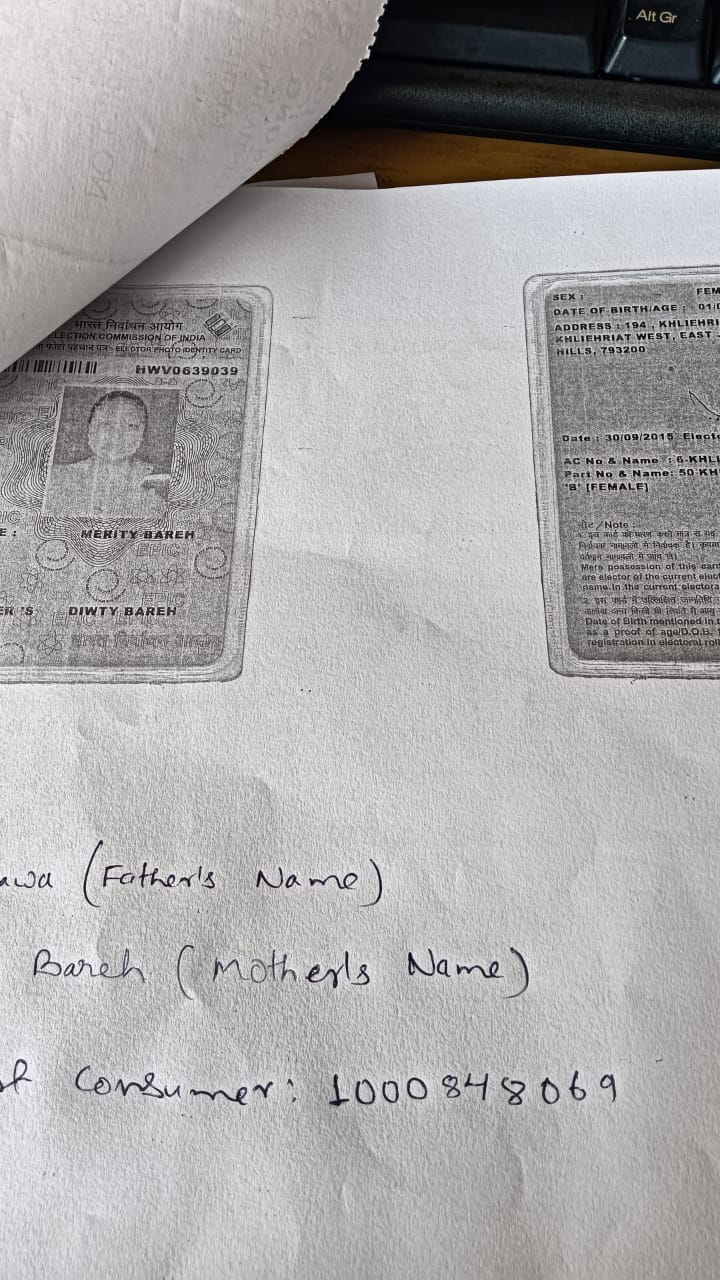 Alt Gr
भारत निर्वाचन आयोग
ELECTION COMMISSION OF INDIA
फोटो पहचान पत्र - ELECTOR PHOTO IDENTITY CARD
HWV0639039
E : MERITY BAREH
ER'S DIWTY BAREH
भारत निर्वाचन आयोग
SEX : FEM
DATE OF BIRTH/AGE : 01/
ADDRESS : 194 , KHLIEHRI
KHLIEHRIAT WEST, EAST
HILLS, 793200
Date : 30/09/2015 Elect
AC No & Name : 6-KHLI
Part No & Name: 50-KH
'B' [FEMALE]
/ Note :
Mere possession of this card
are elector of the current elec
name in the current electora
Date of Birth mentioned in t
as a proof of age/D.O.B.
registration in electoral roll
awa (Father's Name)
Bareh (Mother's Name)
of Consumer: 1000848069